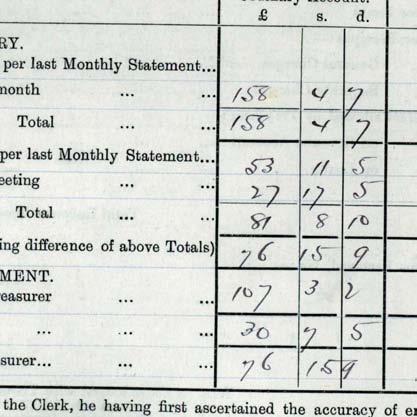 £ s. d.
RY.
per last Monthly Statement...
month ... ... 158 4 7
Total ... ... 158 4 7
per last Monthly Statement... 53 11 5
eeting ... ... 27 17 5
Total ... ... 81 8 10
ing difference of above Totals) 76 15 9
MENT.
reasurer ... ... 107 3 2
... ... 30 7 5
surer... ... ... 76 15 9
the Clerk, he having first ascertained the accuracy of